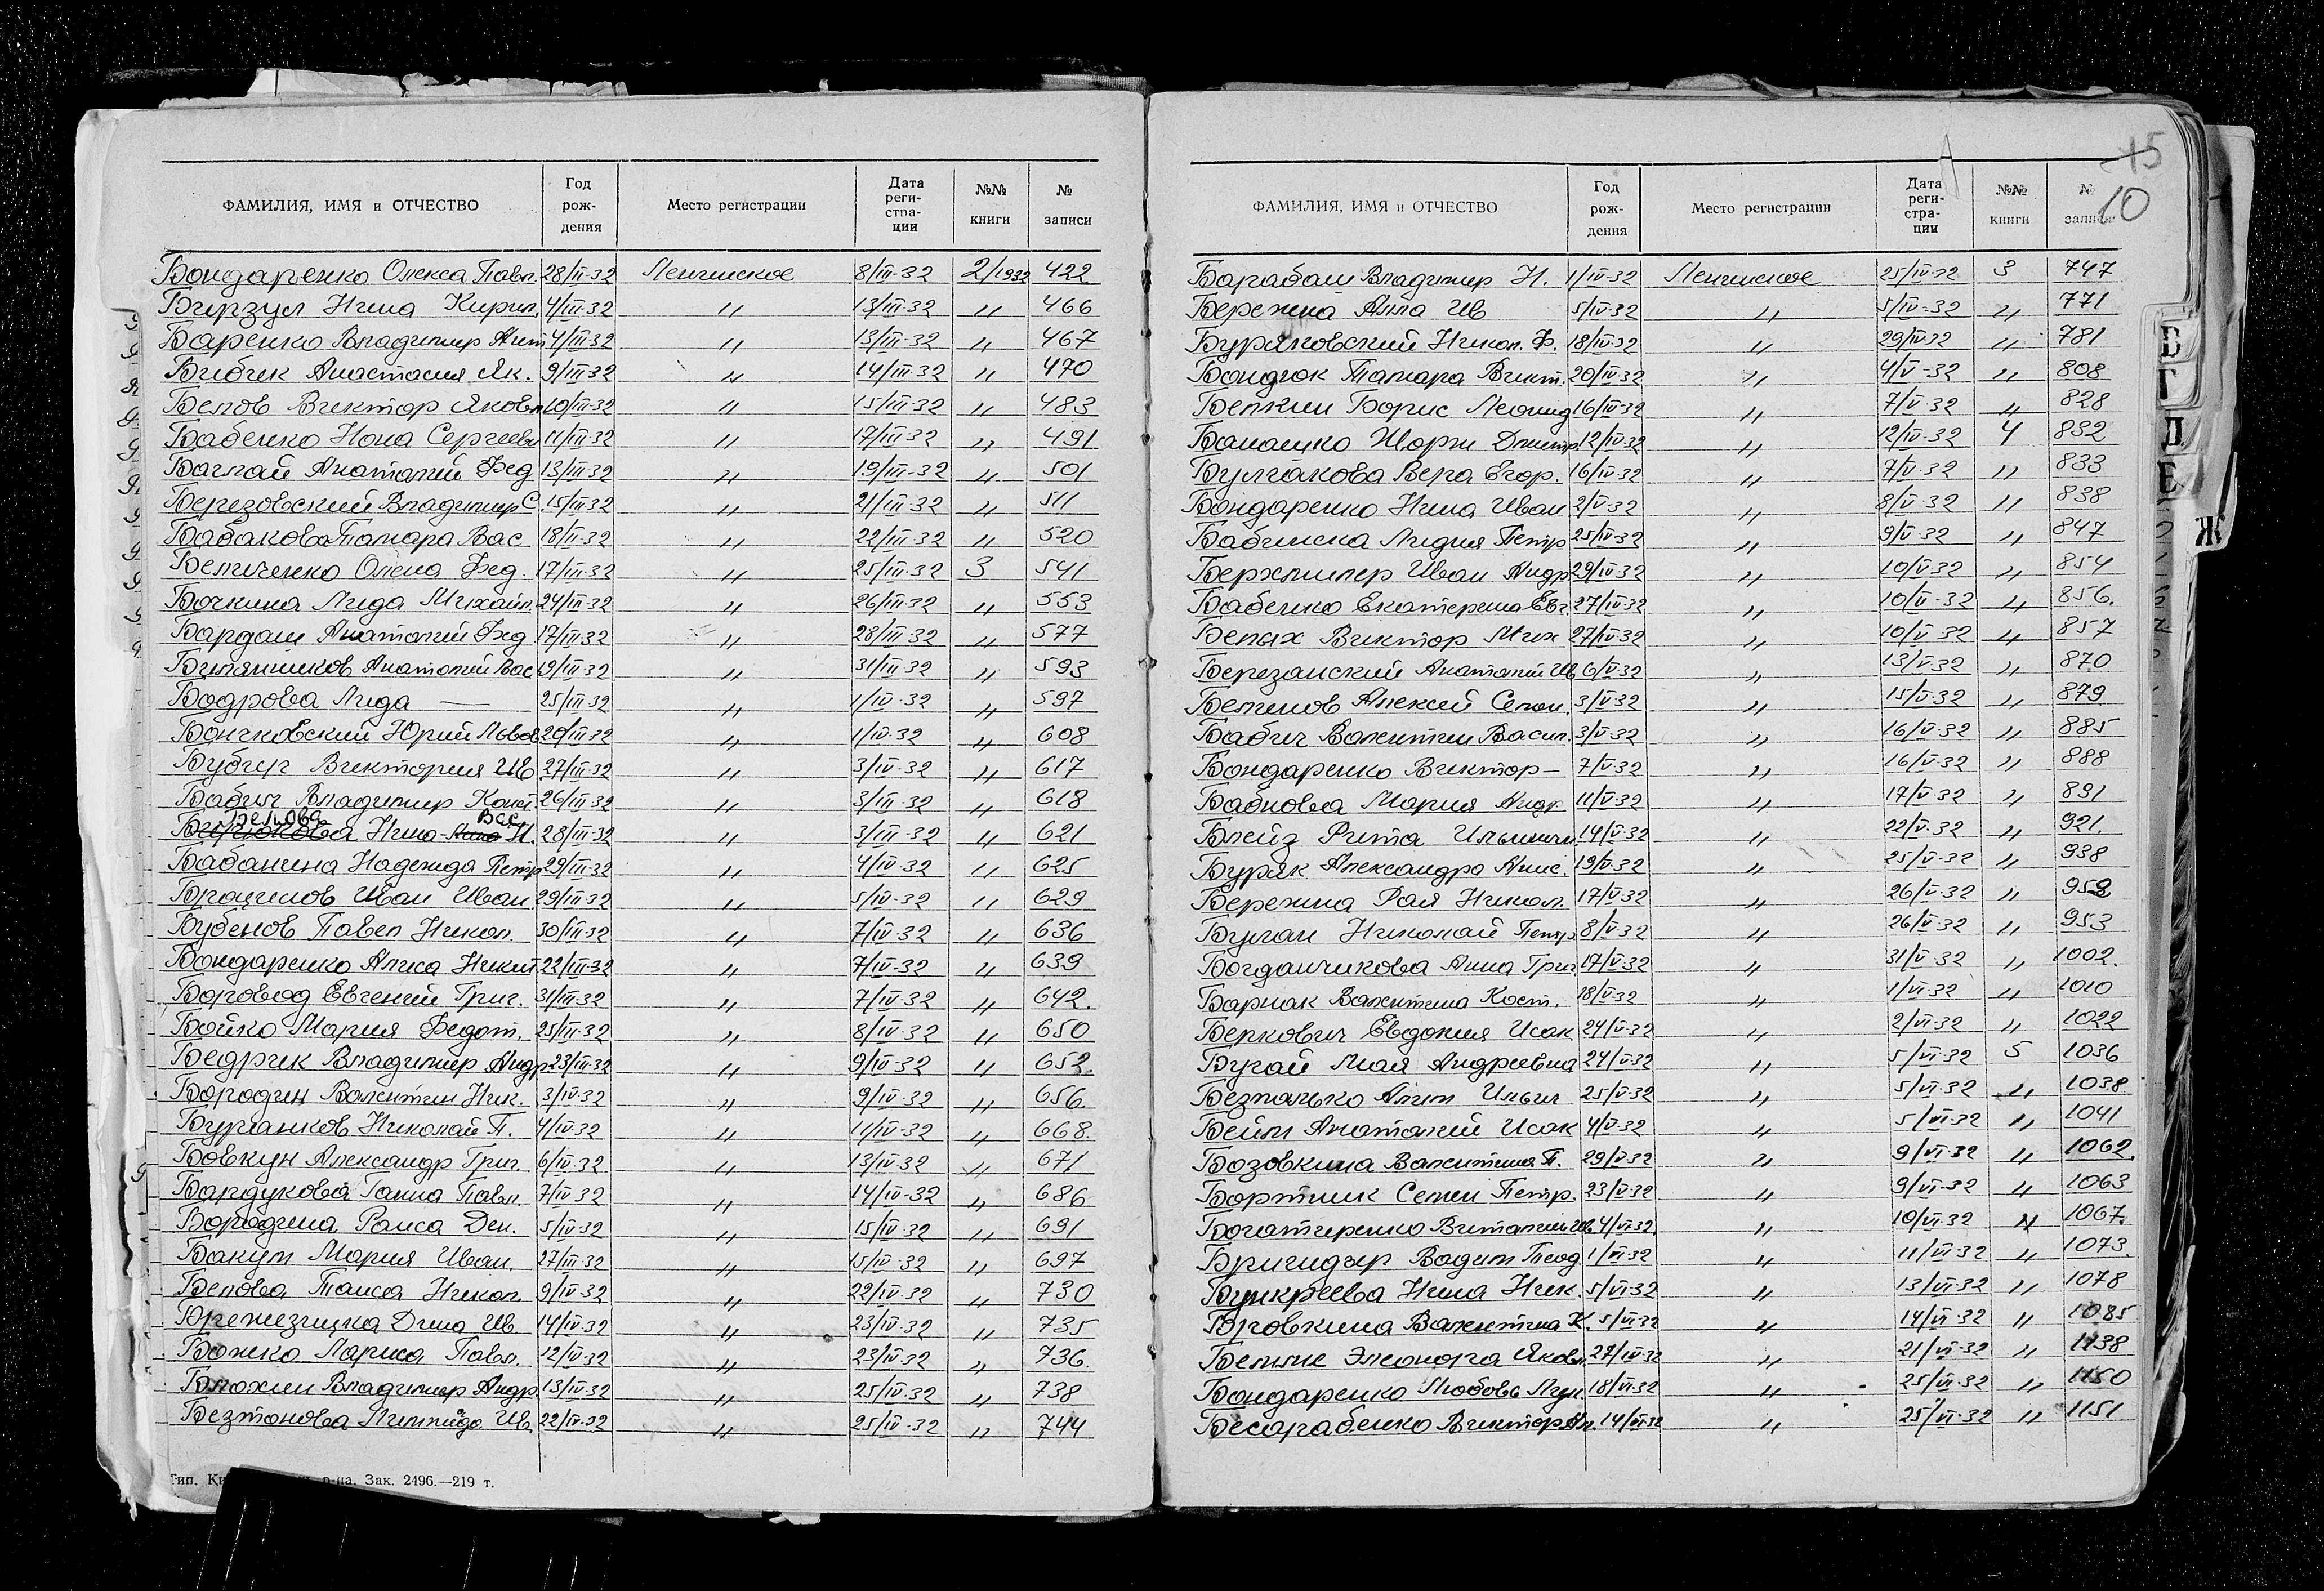 ФАМИЛИЯ, ИМЯ и ОТЧЕСТВО Год рождения Место регистрации Дата регистрации №№ книги № записи
Бондаренко Олекса Павл. 28/II-32 Ленинское 8/III-32 2/1932 422
Бирзул Нина Кирил. 4/III-32 " 13/III-32 " 466
Баренко Владимир Ант 4/III-32 " 13/III-32 " 467
Бибик Анастасия Як. 9/III-32 " 14/III-32 " 470
Белов Виктор Яковл 10/III-32 " 15/III-32 " 483
Бабенко Нона Сергеевн 11/III-32 " 17/III-32 " 491
Баглай Анатолий Фед 13/III-32 " 19/III-32 " 501
Березовский Владимир С. 15/III-32 " 21/III-32 " 511
Бабакова Тамара Вас 18/II-32 " 22/III-32 " 520
Величенко Олена Фед. 17/III-32 " 25/III-32 3 541
Бочкина Лида Михайл. 24/III-32 " 26/III-32 " 553
Бардаш Анатолий Фед 17/III-32 " 28/III-32 " 577
Анатолий Вас 19/III-32 " 31/III-32 " 593
Бодрова Лида — 25/III-32 " 1/IV-32 " 597
Бончковский Юрий Львов 20/III-32 " 1/IV-32 " 608
Бубчиг Виктория Ив 27/III-32 " 3/IV-32 " 617
Бабич Владимир Конст. 26/III-32 " 3/III-32 " 618
Белова Вас
Бирюкова Нина И. 28/III-32 " 3/III-32 " 621
Бабанина Надежда Петр 29/III-32 " 4/IV-32 " 625
Иван Иван. 29/III-32 " 5/IV-32 " 629
Бубенов Павел Никол. 30/III-32 " 7/IV-32 " 636
Бондаренко Алиса Никит 22/III-32 " 7/IV-32 " 639
Боровод Евгений Григ. 31/III-32 " 7/IV-32 " 642.
Бойко Мария Федот. 25/III-32 " 8/IV-32 " 650
Бедрик Владимир Андр 23/III-32 " 9/IV-32 " 652.
Бородин Валентин Ник. 3/IV-32 " 9/IV-32 " 656.
Бурлаков Николай П. 4/IV-32 " 11/IV-32 " 668.
Бовкун Александр Григ. 6/IV-32 " 13/IV-32 " 671
Бардукова Ганна Павл. 7/IV 32 " 14/IV-32 " 686
Бородина Раиса Ден. 5/IV-32 " 15/IV-32 " 691
Бакум Мария Иван. 27/III-32 " 15/IV-32 " 697
Белова Таиса Никол. 9/IV-32 " 22/IV-32 " 730
Бржезицка Дина Ив. 14/IV-32 " 23/IV-32 " 735
Божко Лариса Павл. 12/IV-32 " 23/IV-32 " 736.
Блохин Владимир Андр. 13/IV-32 " 25/IV-32 " 738
Ив. 22/IV-32 " 25/IV-32 " 744
Тип. р-на. Зак. 2496.—219 т.
15
10
ФАМИЛИЯ, ИМЯ и ОТЧЕСТВО Год рождения Место регистрации Дата регистрации №№ книги № записи
Барабаш Владимир Н. 1/IV-32 Ленинское 25/IV-32 3 747
Бережна Алла Ив 5/IV-32 " 5/IV-32 " 771
Буряковский Никол. Ф. 18/IV-32 " 29/IV-32 " 781
Бондюк Тамара Викт. 20/IV-32 " 4/V-32 " 808
Белкин Борис Леонид 16/IV-32 " 7/V-32 " 828
Жорж Дмитр. 12/IV-32 " 12/IV-32 4 832
Булгакова Вера Егор. 16/IV-32 " 7/V-32 " 833
Бондаренко Нина Иван 2/V-32 " 8/V-32 " 838
Бабинска Лидия Петр 25/IV-32 " 9/V-32 " 847
Иван Андр 29/IV-32 " 10/V-32 " 854
Бабенко Екатерина Евг. 27/IV-32 " 10/V-32 " 856.
Белах Виктор Мих 27/IV-32 " 10/V-32 " 857
Березанский Анатолий Ив 6/IV-32 " 13/V-32 " 870
Алексей Семен. 3/V-32 " 15/V-32 " 879.
Бабич Валентин Васил. 3/V-32 " 16/V-32 " 885
Бондаренко Виктор — 7/V-32 " 16/V-32 " 888
Мария Андр 11/V-32 " 17/V-32 " 891
Блейз Рита 14/V-32 " 22/V-32 " 921.
Буряк Александра Анис. 19/V-32 " 25/V-32 " 938
Бережна Рая Никол. 17/V-32 " 26/V-32 " 952
Булан Николай Петр 8/V-32 " 26/V-32 " 953
Богданчикова Анна Григ. 17/V-32 " 31/V-32 " 1002.
Барнак Валентина Кост. 18/V-32 " 1/VI-32 " 1010
Беркович Евдокия Исак 24/V-32 " 2/VI-32 " 1022
Бугай Мая Андреевна 24/V-32 " 5/VI-32 5 1036
Безпалько Алит Ильич 25/V-32 " 5/VI-32 " 1038
Бейм Анатолий Исак 4/V-32 " 5/VI-32 " 1041
Бозовкина Валентина П. 29/V-32 " 9/VI-32 " 1062.
Бортник Семен Петр. 23/V-32 " 9/VI-32 " 1063
Богатиренко Виталий Ив 4/VI-32. " 10/VI-32 " 1067.
Бригидир Вадим Теод 1/VI-32 " 11/VI-32 " 1073.
Нина Ник. 5/VI-32 " 13/VI-32 " 1078
Валентина К. 5/VI-32 " 14/VI-32 " 1085
Элеонора Яковл. 27/IV-32 " 21/VI-32 " 1138
Бондаренко Любовь Лук 18/VI-32 " 25/VI-32 " 1150
Бесарабенко Виктор Ал. 14/VI-32 " 25/VI-32 " 1151
В
Г
Д
Е
Ж